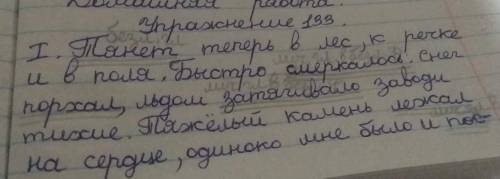 Домашняя работа.
Упражнение 133.
I. Тянет теперь в лес, к речке
и в поля. Быстро смеркалось. Снег
порхал, льдом затягивало заводи
тихие. Тяжёлый камень лежал
на сердце, одиноко мне было и пос-